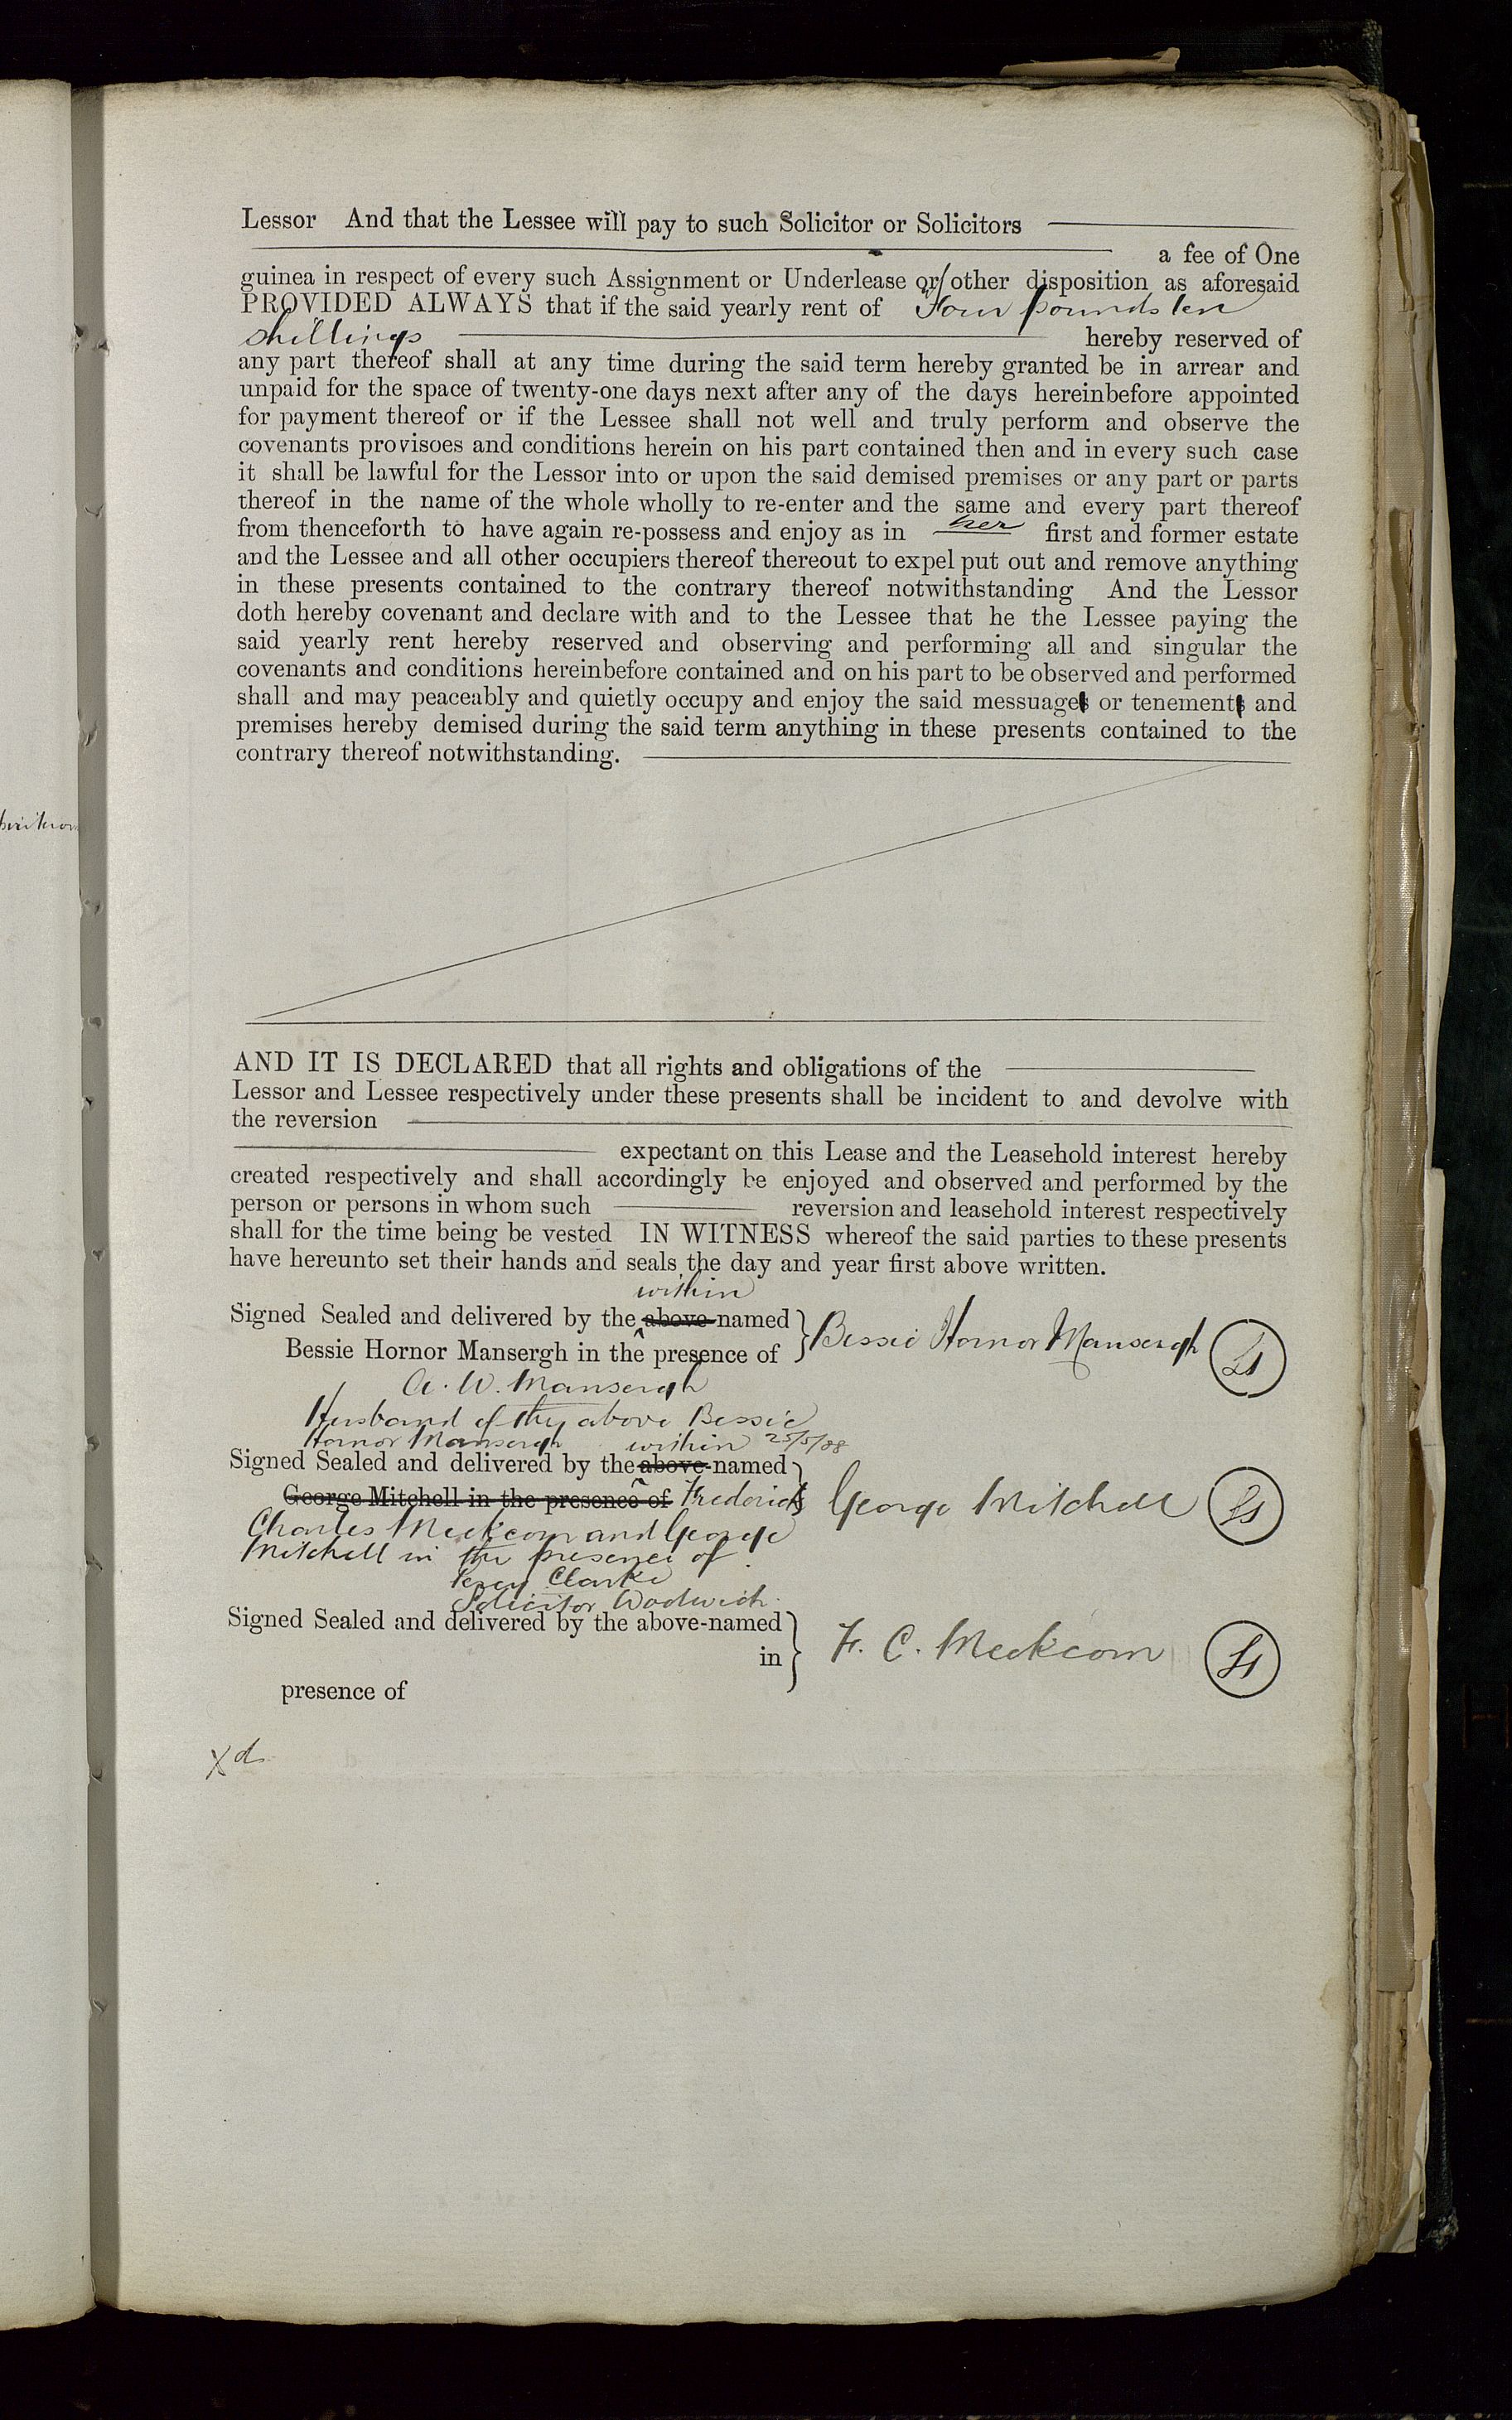 Lessor And that the Lessee will pay to such Solicitor or Solicitors
a fee of One
guinea in respect of every such Assignment or Underlease or/other disposition as aforesaid
PROVIDED ALWAYS that if the said yearly rent of Four pounds ten
shillings hereby reserved of
any part thereof shall at any time during the said term hereby granted be in arrear and
unpaid for the space of twenty-one days next after any of the days hereinbefore appointed
for payment thereof or if the Lessee shall not well and truly perform and observe the
covenants provisoes and conditions herein on his part contained then and in every such case
it shall be lawful for the Lessor into or upon the said demised premises or any part or parts
thereof in the name of the whole wholly to re-enter and the same and every part thereof
from thenceforth to have again re-possess and enjoy as in her first and former estate
and the Lessee and all other occupiers thereof thereout to expel put out and remove anything
in these presents contained to the contrary thereof notwithstanding And the Lessor
doth hereby covenant and declare with and to the Lessee that he the Lessee paying the
said yearly rent hereby reserved and observing and performing all and singular the
covenants and conditions hereinbefore contained and on his part to be observed and performed
shall and may peaceably and quietly occupy and enjoy the said messuages or tenements and
premises hereby demised during the said term anything in these presents contained to the
contrary thereof notwithstanding.
AND IT IS DECLARED that all rights and obligations of the
Lessor and Lessee respectively under these presents shall be incident to and devolve with
the reversion
expectant on this Lease and the Leasehold interest hereby
created respectively and shall accordingly be enjoyed and observed and performed by the
person or persons in whom such reversion and leasehold interest respectively
shall for the time being be vested IN WITNESS whereof the said parties to these presents
have hereunto set their hands and seals the day and year first above written.
within
Signed Sealed and delivered by the above-named
Bessie Hornor Mansergh in the presence of
Bessie Hornor Mansergh LS
A. W. Mansergh
Husband of the above Bessie
Hornor Mansergh within 25/5/88
Signed Sealed and delivered by the above-named
George Mitchell in the presence of Frederick
George Mitchell LS
Charles Meekcom and George
Mitchell in the presence of
Clarke
Solicitor Woolwich.
Signed Sealed and delivered by the above-named
in
F. C. Meekcom LS
presence of
Xd